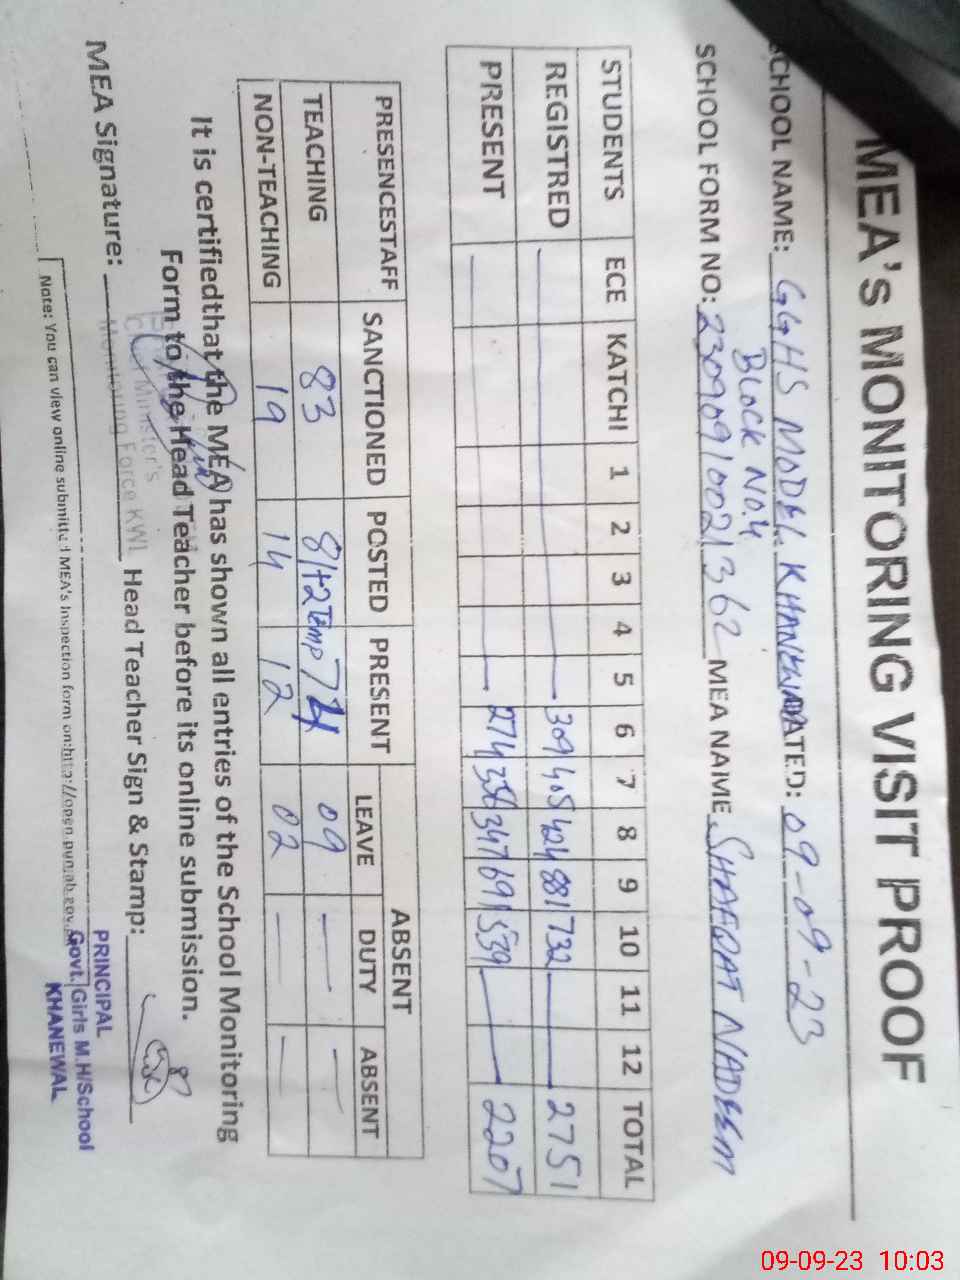 MEA's MONITORING VISIT PROOF
SCHOOL NAME: GGHS MODEL KHANEWAL DATED: 09-09-23
BLOCK NO.4
SCHOOL FORM NO: 23090910021362 MEA NAME SHAFQAT NADEEM
STUDENTS ECE KATCHI 1 2 3 4 5 6 7 8 9 10 11 12 TOTAL
REGISTRED 309 405 424 881 732 2751
PRESENT 274 356 347 691 539 2207
PRESENCESTAFF SANCTIONED POSTED PRESENT ABSENT
LEAVE DUTY ABSENT
TEACHING 83 81+2Temp 74 09
NON-TEACHING 19 14 12 02
It is certifiedthat the MEA has shown all entries of the School Monitoring
Form to the Head Teacher before its online submission.
MEA Signature: Head Teacher Sign & Stamp:
Chief Minister's
Monitoring Force KWL
PRINCIPAL
Govt. Girls M.H/School
KHANEWAL
Note: You can view online submitted MEA's Inspection form on:http://open.punjab.gov.
09-09-23 10:03